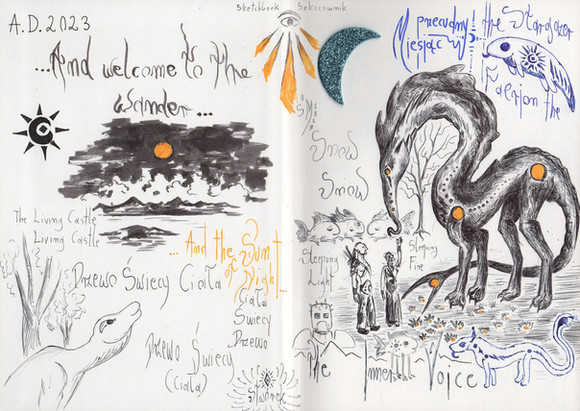 A.D. 2023
Sketchbook Szkicownik
...And welcome to the
Wander...
przecudny
Miesiąc
the Stargazer
Faelion the
Snow
Snow
The Living Castle
Living Castle
...And the Sun
of Night...
Drzewo Świecy Ciała
Ciała
Świecy
Drzewo
Drzewo Świecy
(Ciała)
Sleeping
Light
Sleeping
Fire
The Immortal Voice